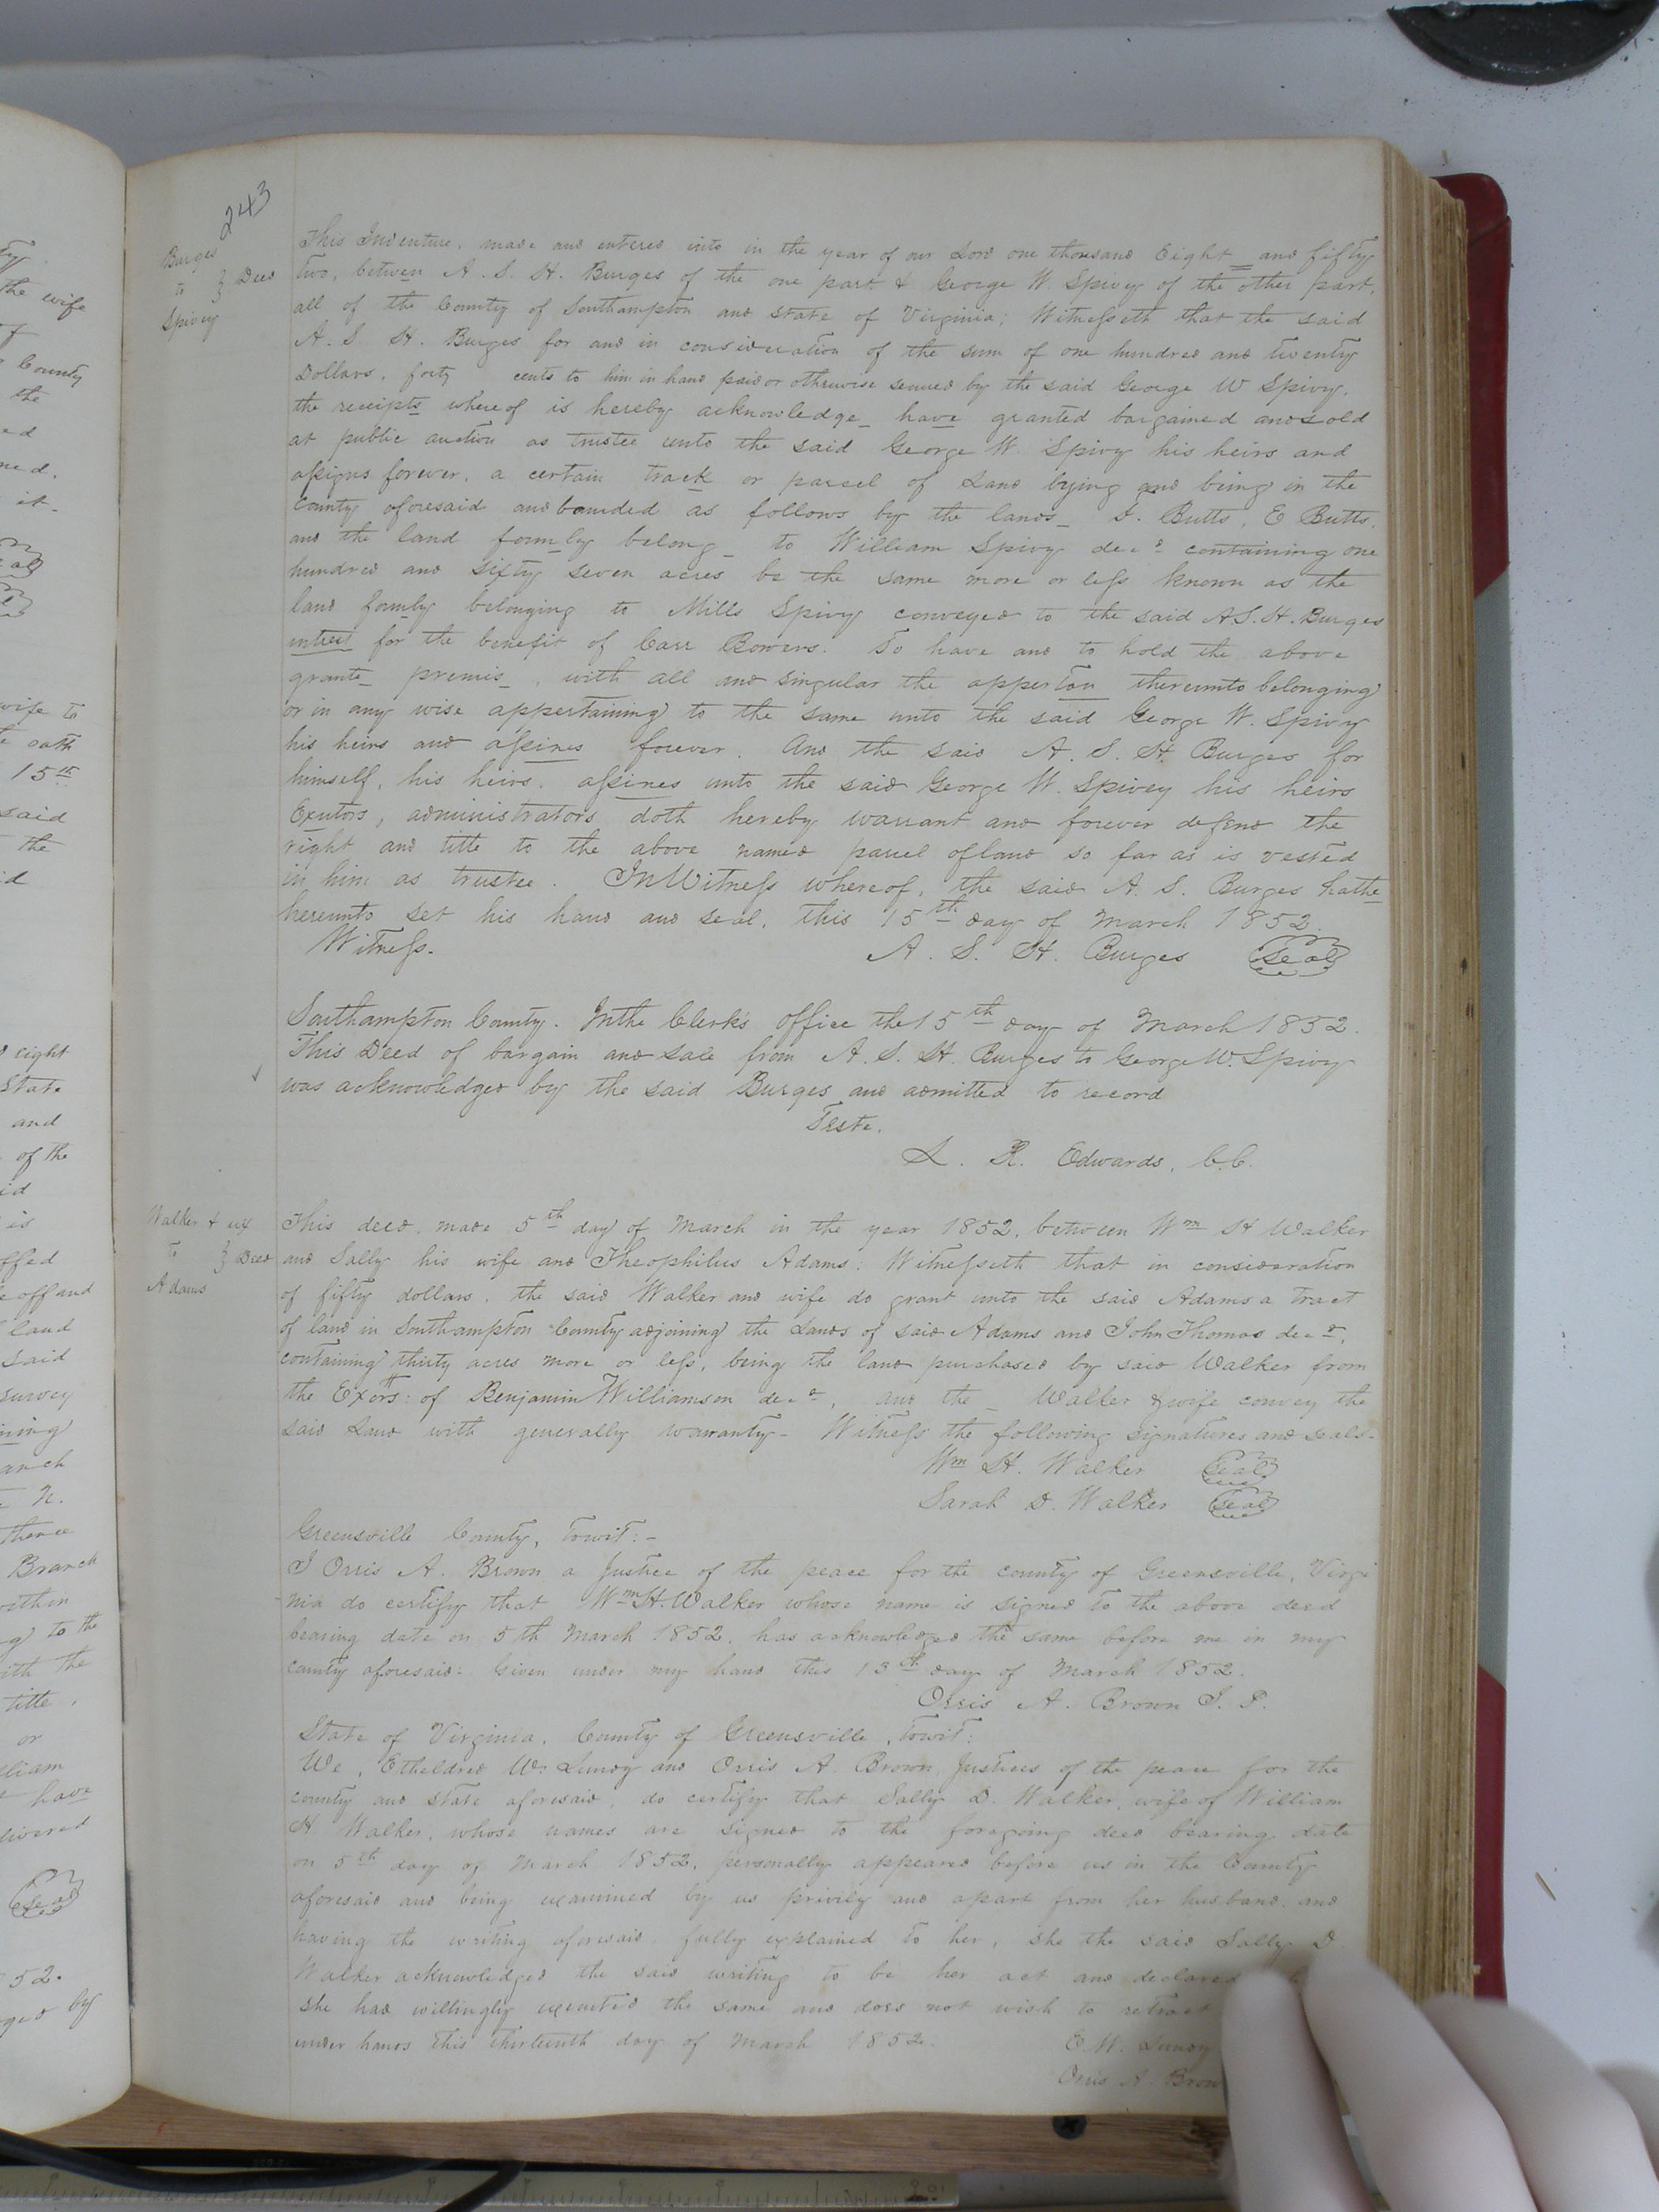 243
Burges
to } Deed
Spivey
This Indenture, made and entered into in the year of our Lord one thousand Eight = and fifty
Two, between A. S. H. Burges of the one part & George W. Spivy of the other part,
all of the County of Southampton and state of Virginia; Witnesseth that the said
A. S. H. Burges for and in consideration of the sum of one hundred and twenty
Dollars, forty cents to him in hand paid or otherwise secured by the said George W Spivy,
the receipts whereof is hereby acknowledge_ have granted bargained and sold
at public auction as trustee unto the said George W. Spivy his heirs and
assigns forever, a certain track or parcel of Land lying and being in the
County aforesaid and bounded as follows by the lands_ J. Butts, E Butts,
and the land formly belong_ to William Spivy decd containing one
hundred and sixty seven acres be the same more or less known as the
land formly belonging to Mills Spivy conveyed to the said A S. H. Burges
intrest for the benefit of Carr Bowers. To have and to hold the above
grante_ premis_, with all and singular the apperton thereunto belonging
or in any wise appertaining to the same unto the said George W. Spivy
his heirs and assines forever. And the said A. S. H. Burges for
himself, his heirs, assines unto the said George W. Spivey his heirs
Exutors, administrators doth hereby warrant and forever defend the
right and title to the above named parcel of land so far as is vested
in him as trustee. In Witness whereof, the said A. S. Burges hathe
hereunto set his hand and seal, this 15th day of March 1852.
Witness. A. S. H. Burges Seal
Southampton County. In the Clerk's office the 15th day of March 1852.
This Deed of bargain and sale from A. S. H. Burges to George W. Spivy
was acknowledged by the said Burges and admitted to record
Teste.
L. R. Edwards, C.C.
Walker & ux
to } Deed
Adams
This deed, made 5th day of March in the year 1852, between Wm H Walker
and Sally his wife and Theophilus Adams: Witnesseth that in consideration
of fifty dollars, the said Walker and wife do grant unto the said Adams a tract
of land in Southampton County adjoining the Lands of said Adams and John Thomas decd,
containing thirty acres more or less, being the land purchased by said Walker from
the Exors: of Benjamin Williamson decd, and the _ Walker & wife convey the
said Land with generally warranty- Witness the following signatures and seals-
Wm H. Walker Seal
Sarah D. Walker Seal
Greensville County, towit:-
I Orris A. Brown a Justice of the peace for the county of Greensville, Virgi
-nia do certify that Wm H. Walker whose name is signed to the above deed
bearing date on 5th March 1852, has acknowledged the same before me in my
county aforesaid: Given under my hand this 13th day of March 1852.
Orris A. Brown J. P.
State of Virginia, County of Greensville, towit:
We, Etheldred W. Lundy and Orris A. Brown, Justices of the peace for the
county and state aforesaid, do certify that Sally D. Walker, wife of William
H Walker, whose names are signed to the foregoing deed bearing date
on 5th day of March 1852, personally appeared before us in the County
aforesaid and being examined by us privily and apart from her husband, and
having the writing aforesaid fully explained to her, she the said Sally D.
Walker acknowledged the said writing to be her act and declared
she had willingly executed the same and does not wish to retract
under hands this thirteenth day of March 1852.
E. W. Lundy
Orris A. Brow